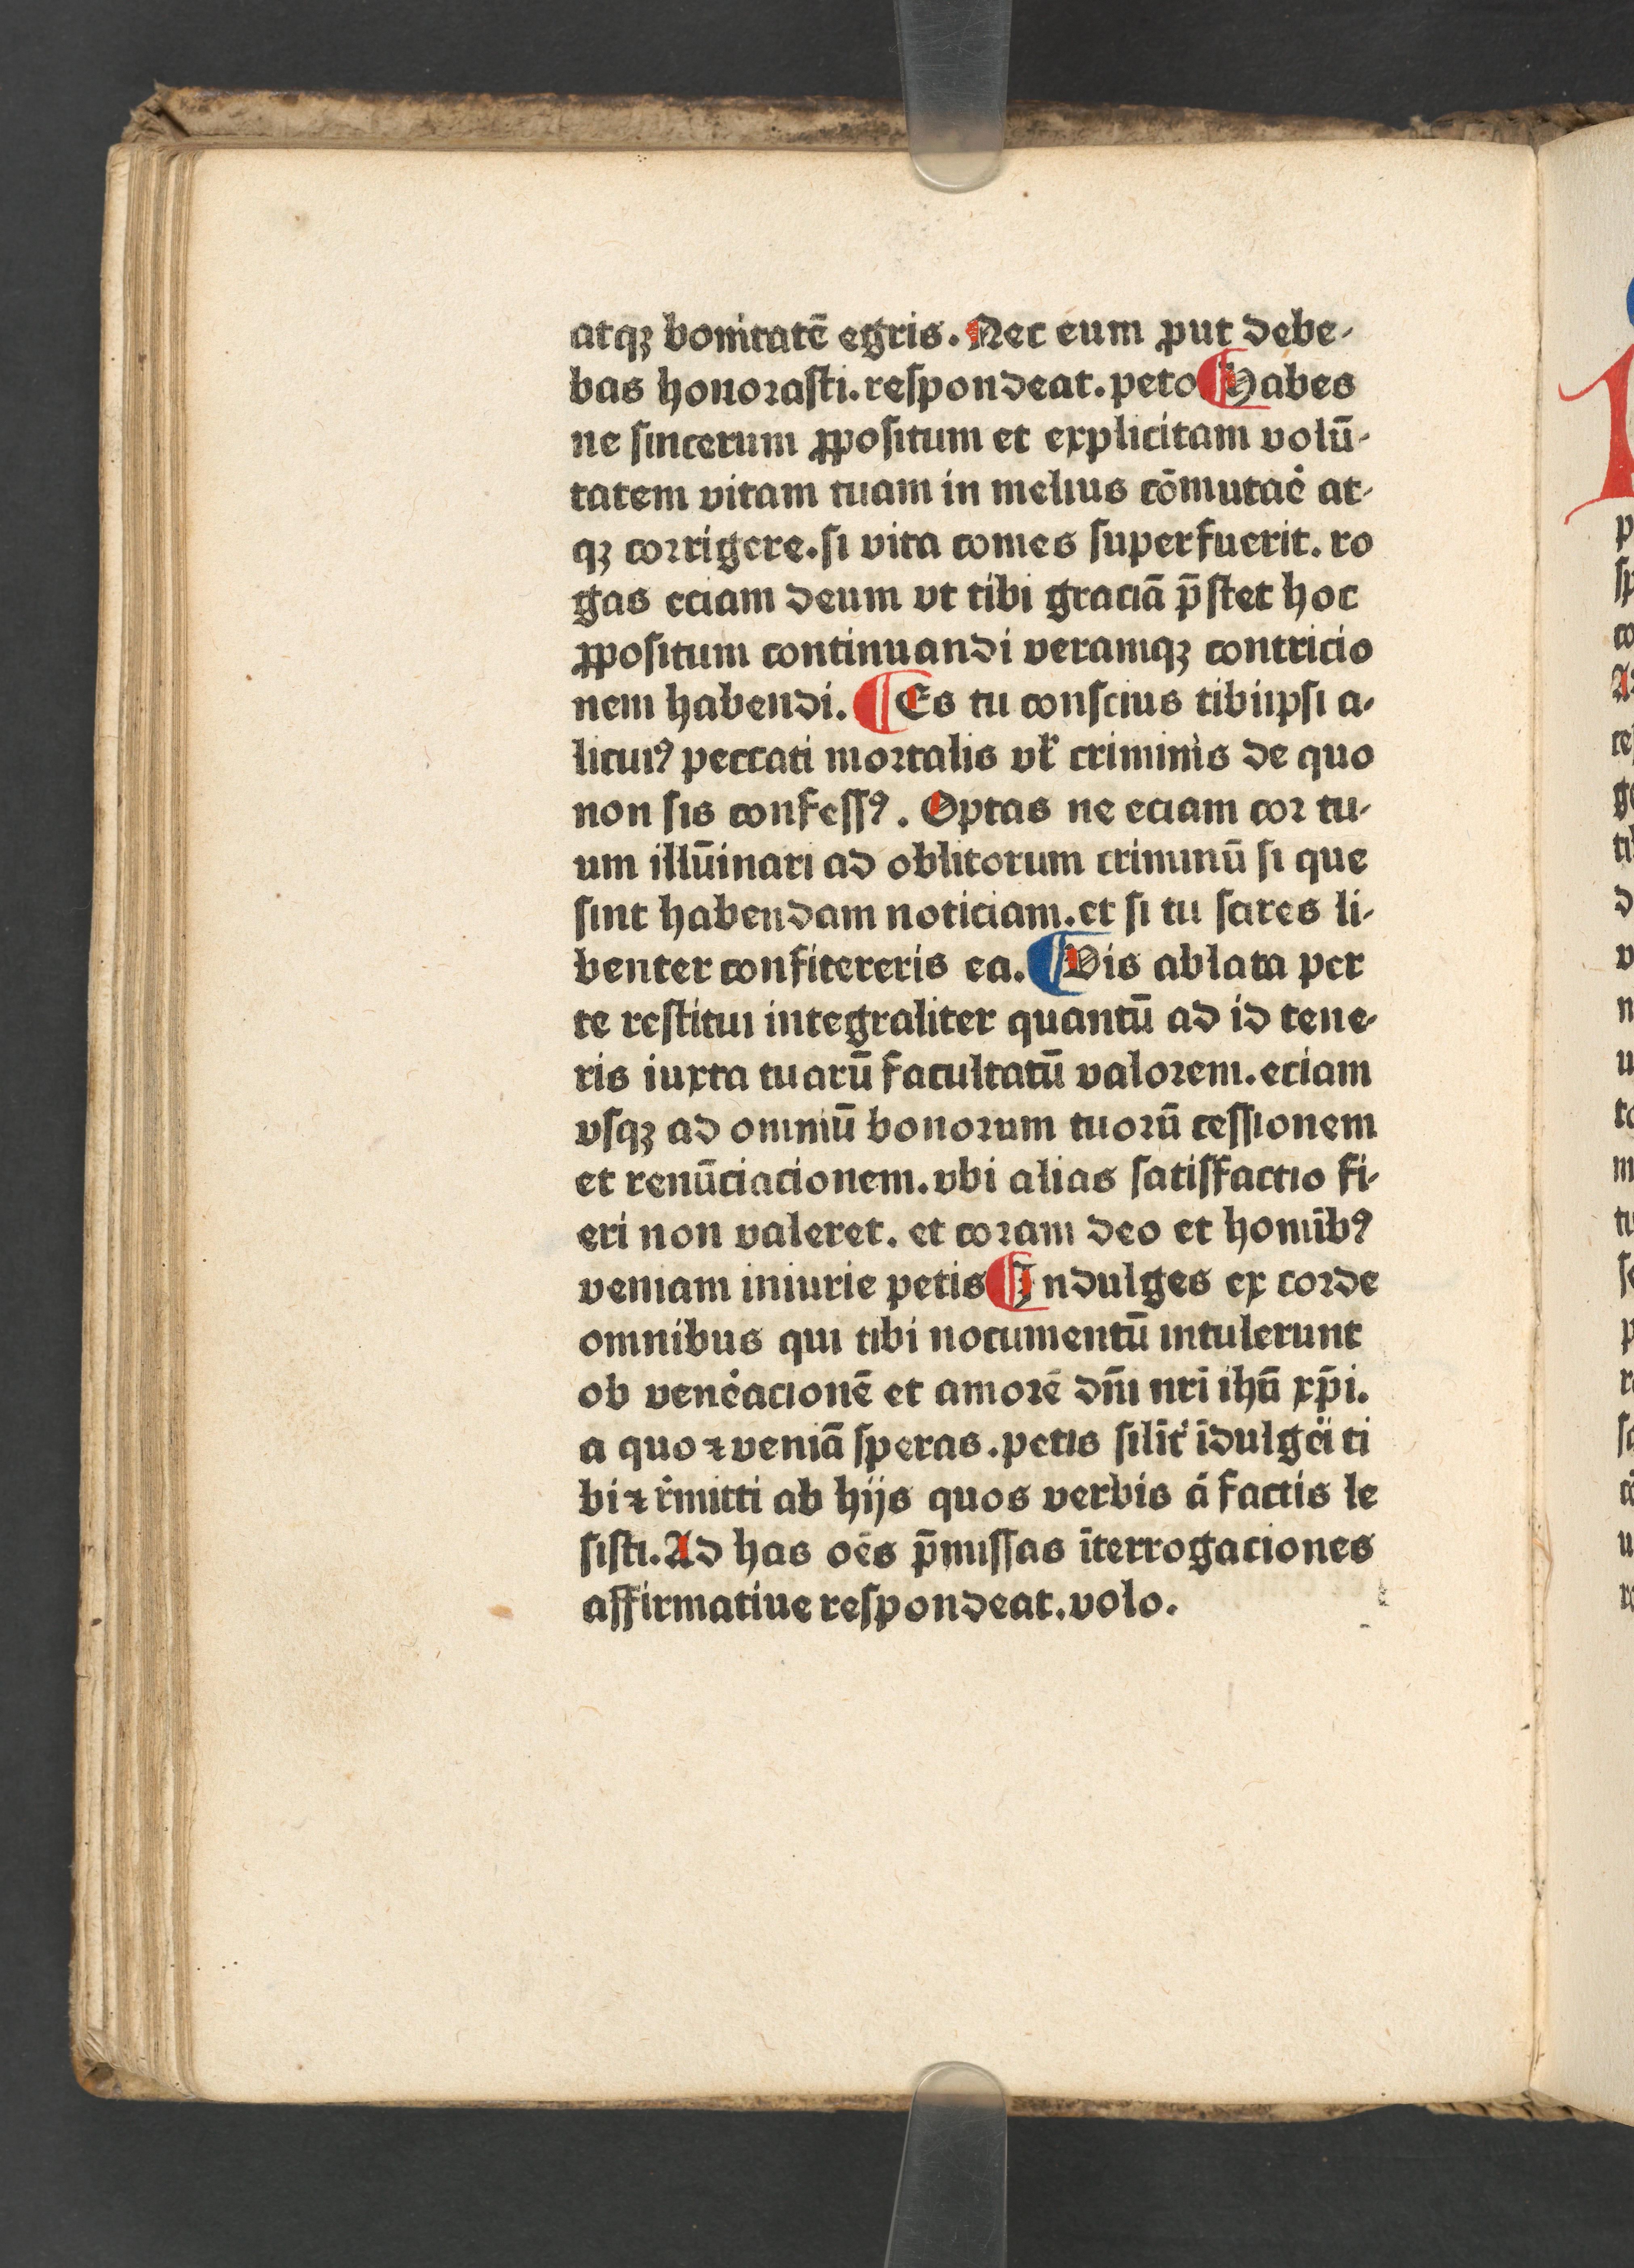 atqꝫ bonitatē egris. Nec eum ꝓut debe-
bas honoꝛaſti. reſpondeat. peto ¶ Habes
ne ſincerum ꝓpoſitum et explicitam volū-
tatem vitam tuam in melius cōmutac̾ at-
qꝫ coꝛrigere. ſi vita comes ſuperfuerit. ro
gas eciam deum vt tibi graciā p̄ſtet hoc
ꝓpoſitum continuandi veramqꝫ contricio
nem habendi. ¶ Es tu conſcius tibiipſi a-
licuiꝰ peccati moꝛtalis vł criminis de quo
non ſis confeſſꝰ. Optas ne eciam coꝛ tu-
um illūinari ad oblitorum criminū ſi que
ſint habendam noticiam. et ſi tu ſcires li-
benter confitereris ea. ¶ Vis ablata per
te reſtitui integraliter quantū ad id tene-
ris iuxta tuarū facultatū valoꝛem. eciam
vſqꝫ ad omniū bonoꝛum tuoꝛū ceſſionem
et renūciacionem. vbi alias ſatiſfactio fi-
eri non valeret. et coꝛam deo et homībꝰ
veniam iniurie petis ¶ Indulges ex coꝛde
omnibus qui tibi nocumentū intulerunt
ob vene̾acionē et amoꝛē dn̄i nr̄i ihū xp̄i.
a quo ꝛ veniā ſperas. petis ſil̄it̾ īdulgēi ti
bi ꝛ r̾mitti ab hijs quos verbis ā factis le
ſiſti. Ad has oēs p̄miſſas īterrogaciones
affirmatiue reſpondeat. volo.